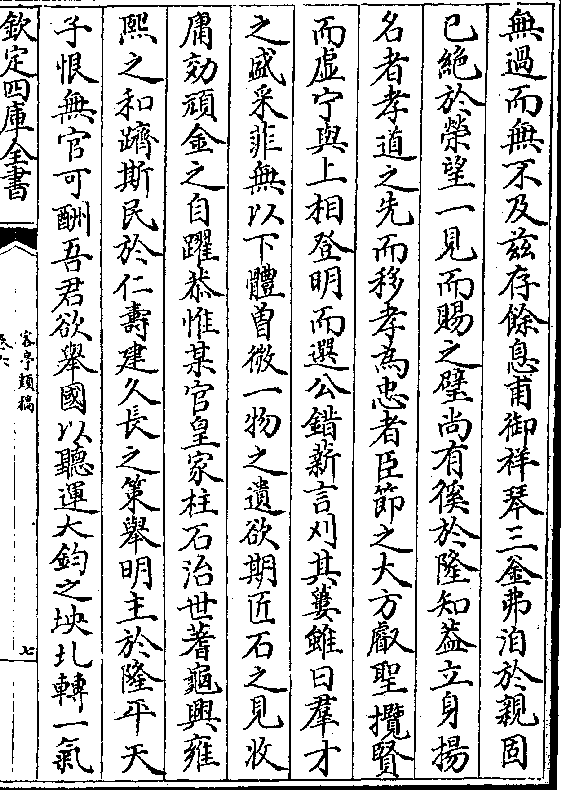 無過而無不及兹存餘息甫御祥琴三釜弗洎於親固
已絶於榮望一見而賜之璧尚有徯於隆知葢立身揚
名者孝道之先而移孝為忠者臣節之大方㕡聖攬賢
而虛宁與上相登明而選公錯薪言刈其蔞雖曰羣才
之盛采菲無以下體曽微一物之遺欲期匠石之見收
庸効頑金之自躍恭惟某官皇家柱石治世蓍龜興雍
熙之和躋斯民於仁壽建久長之策舉明主於隆平天
子恨無官可酬吾君欲舉國以聽運大鈞之坱圠轉一氣
欽定四庫全書
客亭類稿
卷六
七